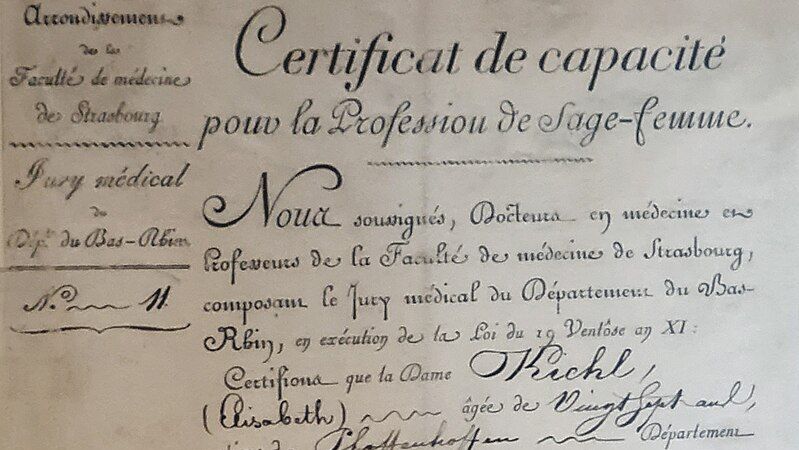 Arrondissement
de la
Faculté de médecine
de Strasbourg
Jury médical
du
Dépt. du Bas-Rhin
N.o 11.
Certificat de capacité
pour la Profession de Sage-femme.
Nous soussignés, Docteurs en médecine et
Professeurs de la Faculté de médecine de Strasbourg,
composant le Jury médical du Département du Bas-
Rhin, en exécution de la Loi du 19 Ventôse an XI:
Certifions que la Dame Kiehl,
(Elisabeth) âgée de Vingt Sept ans,
Pfaffenhoffen Département